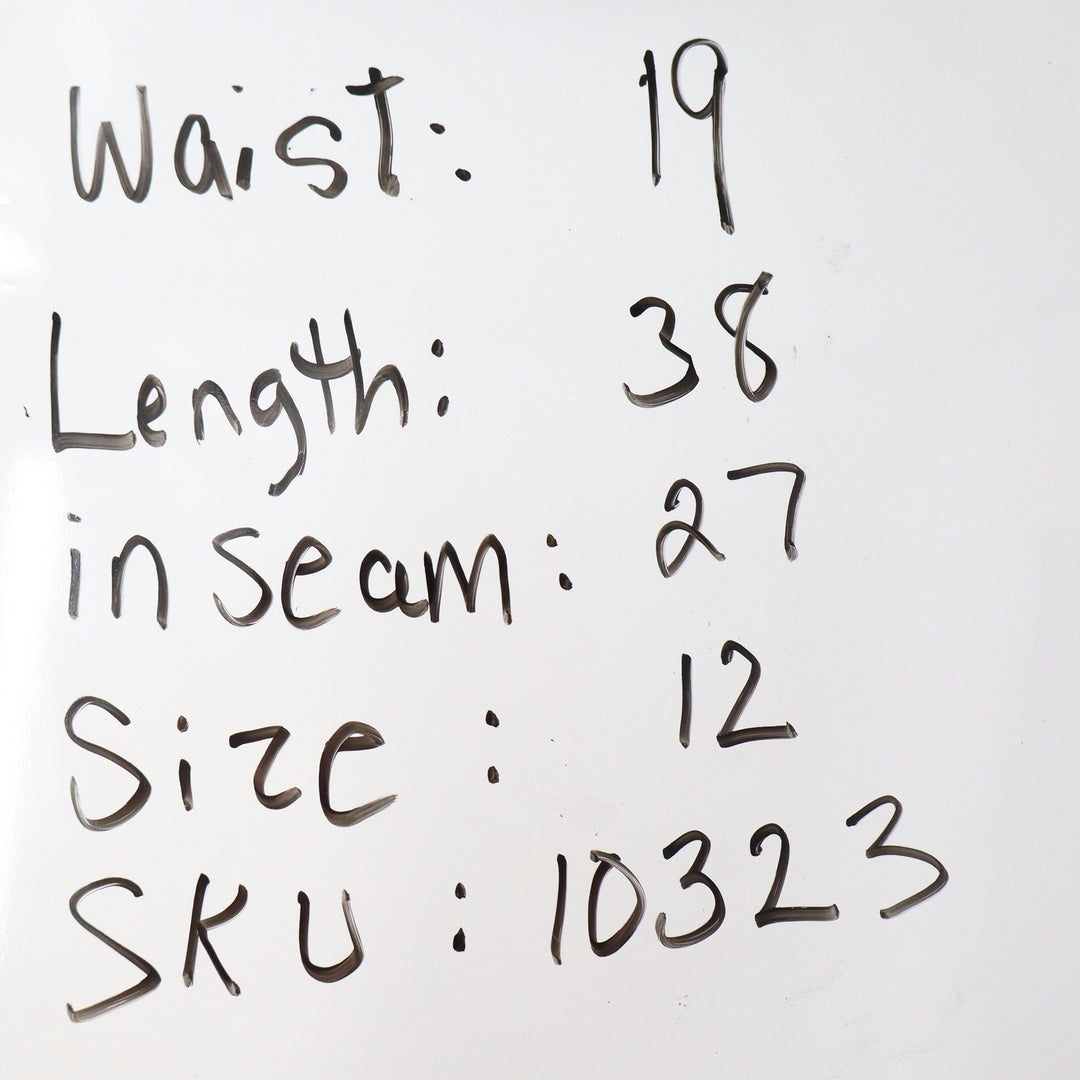 Waist: 19
Length: 38
in seam: 27
Size: 12
SKU: 10323